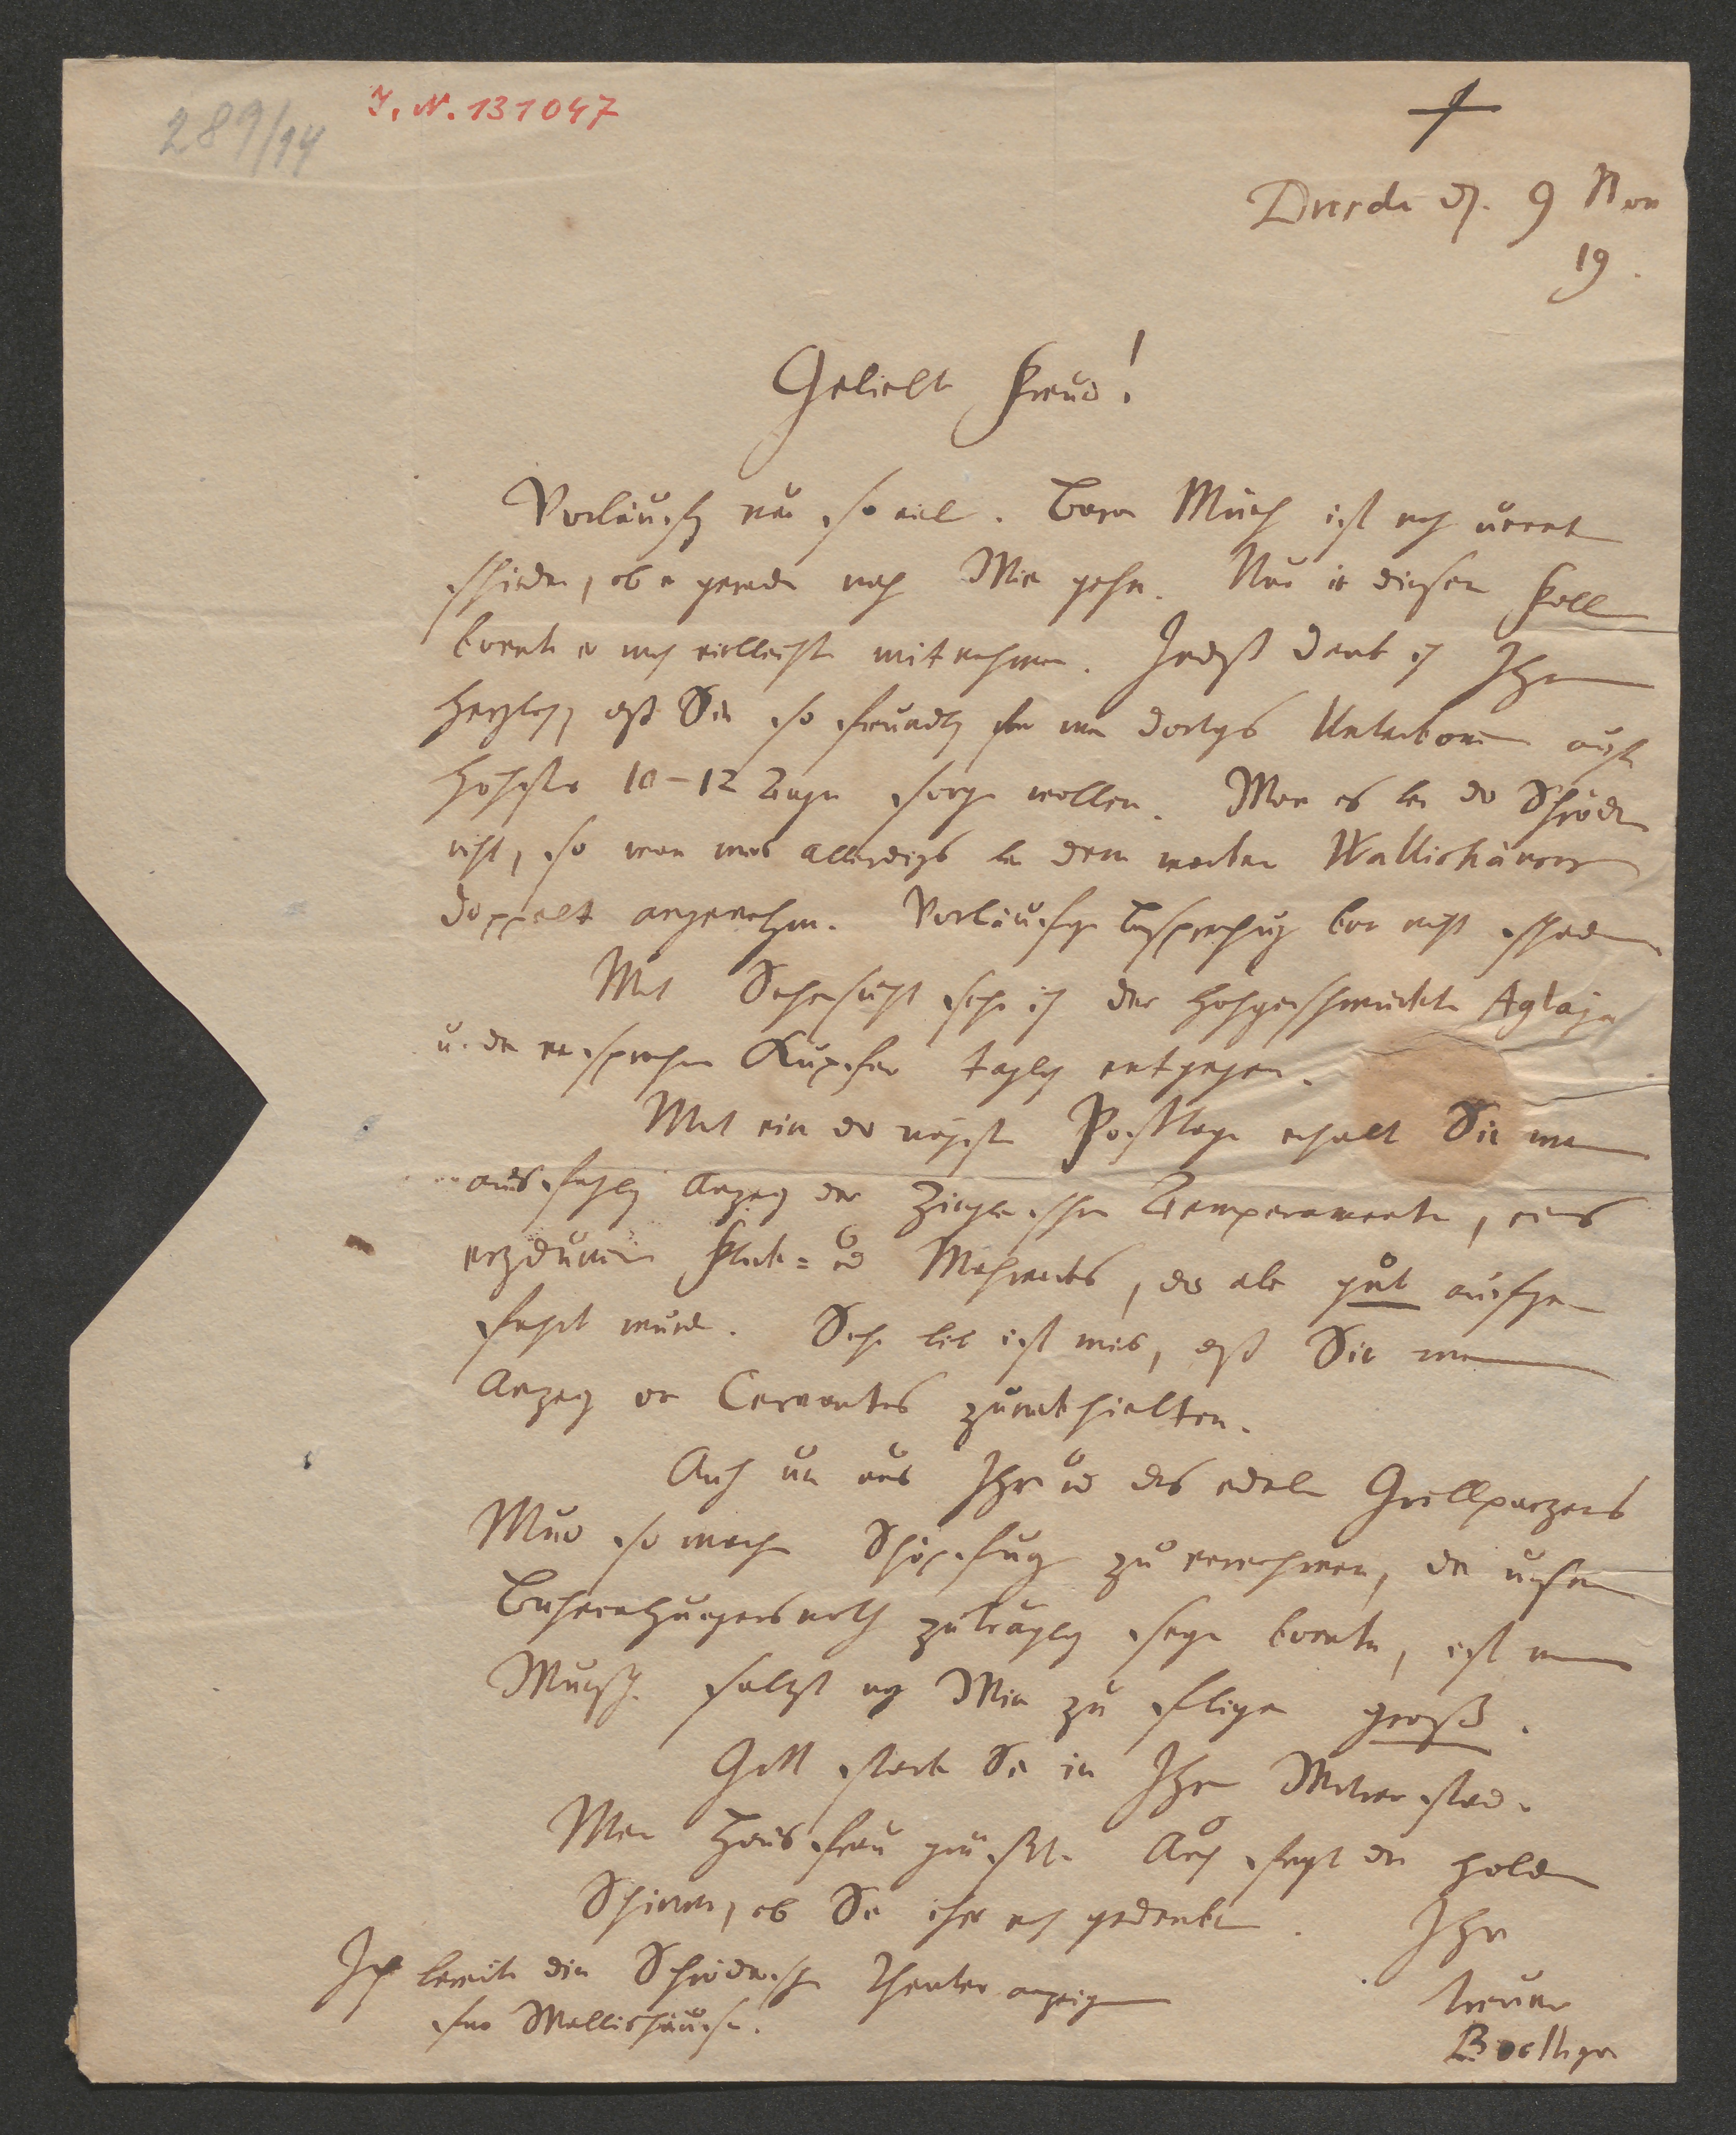 289/94
I. N. 131047
Dresde d. 9 Nov
19.
Geliebter Freund!
Vorläufig nur so viel. Baron Münch ist noch unent
schieden, ob er gerade nach Wien gehn. Nur in diesem Fall
konnte er mich vielleicht mitnehmen. Indeß dank ich Ihnen
herzlich, daß Sie so freundlich für mein dortiges Unterkommen auf
höchstens 10-12 Tage sorgen wollen. Wär es bei der Schröder
nicht, so wär mirs allerdings bei dem wackern Wallishausser
doppelt angenehm. Vorläufige Besprechung kan nicht schaden
Mit Sehnsucht sehe ich der hochgeschmückten Aglaja
u. den versprochnen Kupfer täglich entgegen.
Mit einem der nächsten Posttage erhalten Sie meine
ausführliche Anzeige der Zieglerschen Temperamente, eines
erzdummen Flick= und Machwerks, das aber gut aufge
führt wurde. Sehr lieb ist mirs, daß Sie meine
Anzeige von Cervantes zurückhielten.
Auch um aus Ihrem und des edeln Grillparzers
Mund so manche Schöpfung zu vernehmen, die unserer
Bühnenhungersnoth zuträglich seyn konnte, ist mein
Wunsch selbst nach Wien zu fliegen groß.
Gott stärke Sie in Ihrem Witwerstand.
Meine Hausfrau grüßt. Auch fragt die holde
Schirmer, ob Sie ihrer noch gedenken. Ihr
treuer
Boettiger
Ich bereite die Schröderschen Theateranzeigen
für Wallishausser.